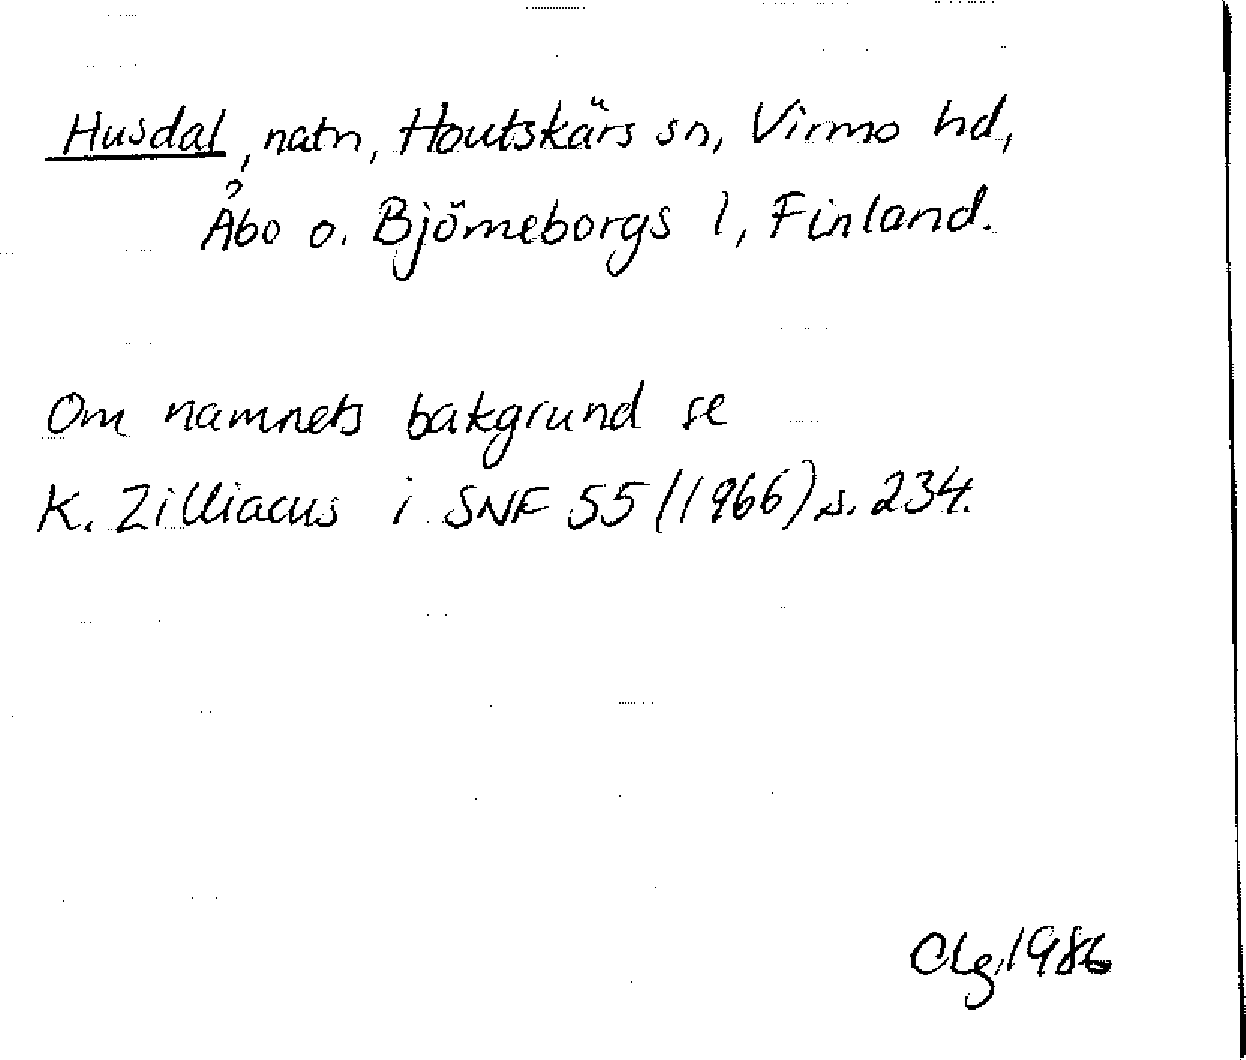 Husdal, natn, Houtskärs sn, Virmo hd,
Åbo o. Björneborgs l, Finland.
Om namnets bakgrund se
K. Zilliacus i SNF 55 (1966) s. 234.
Clg, 1986